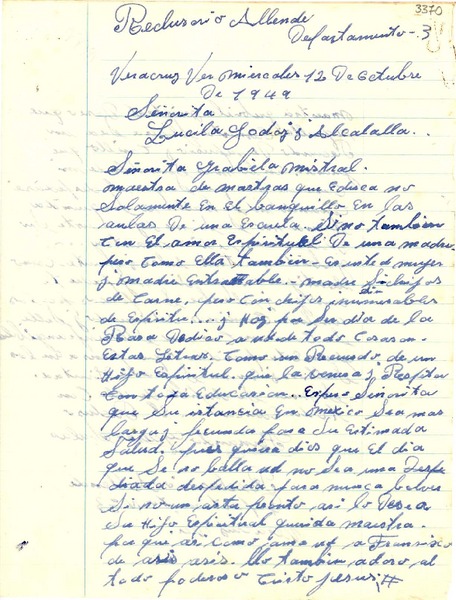 3370
Reclusorio Allende
Departamento-3
Veracruz Ver miercoles 12 De Octubre
De 1949
Señorita
Lucila Godoj j Alcalalla..
Señorita Grabiela Mistral.
maestra de maestras que Educa no
Solamente En El banquillo En las
aulas De una Escuela. Sino tambien
Con El amor Espiritual De una madre
pero Como Ella tambien - Es usted mujer
j madre - madre Sin hijos
de Carne, pero Con hijos inumerables
de Espiritu... j Hoj por Ser dia de la
Rasa Dedico a ud de todo Corason
Estas Letras. Como un Recuerdo de un
Hijo Espiritual. que la venera j Respeta
Con toda Educasion. Espero Señorita
que Su instancia En Mexico Sea mas
larga j fecunda para Su Estimada
Salud. pues quiera dios que El dia
que Se no Sea una Despe
diada despedida para nunca bolver
Si no un asta pronto asi lo Desea
Su Hijo Espiritual querida maestra.
por que asi Como ama ud a Francisco
de asis. Yo tambien adoro al
todo poderoso Cristo Jesus